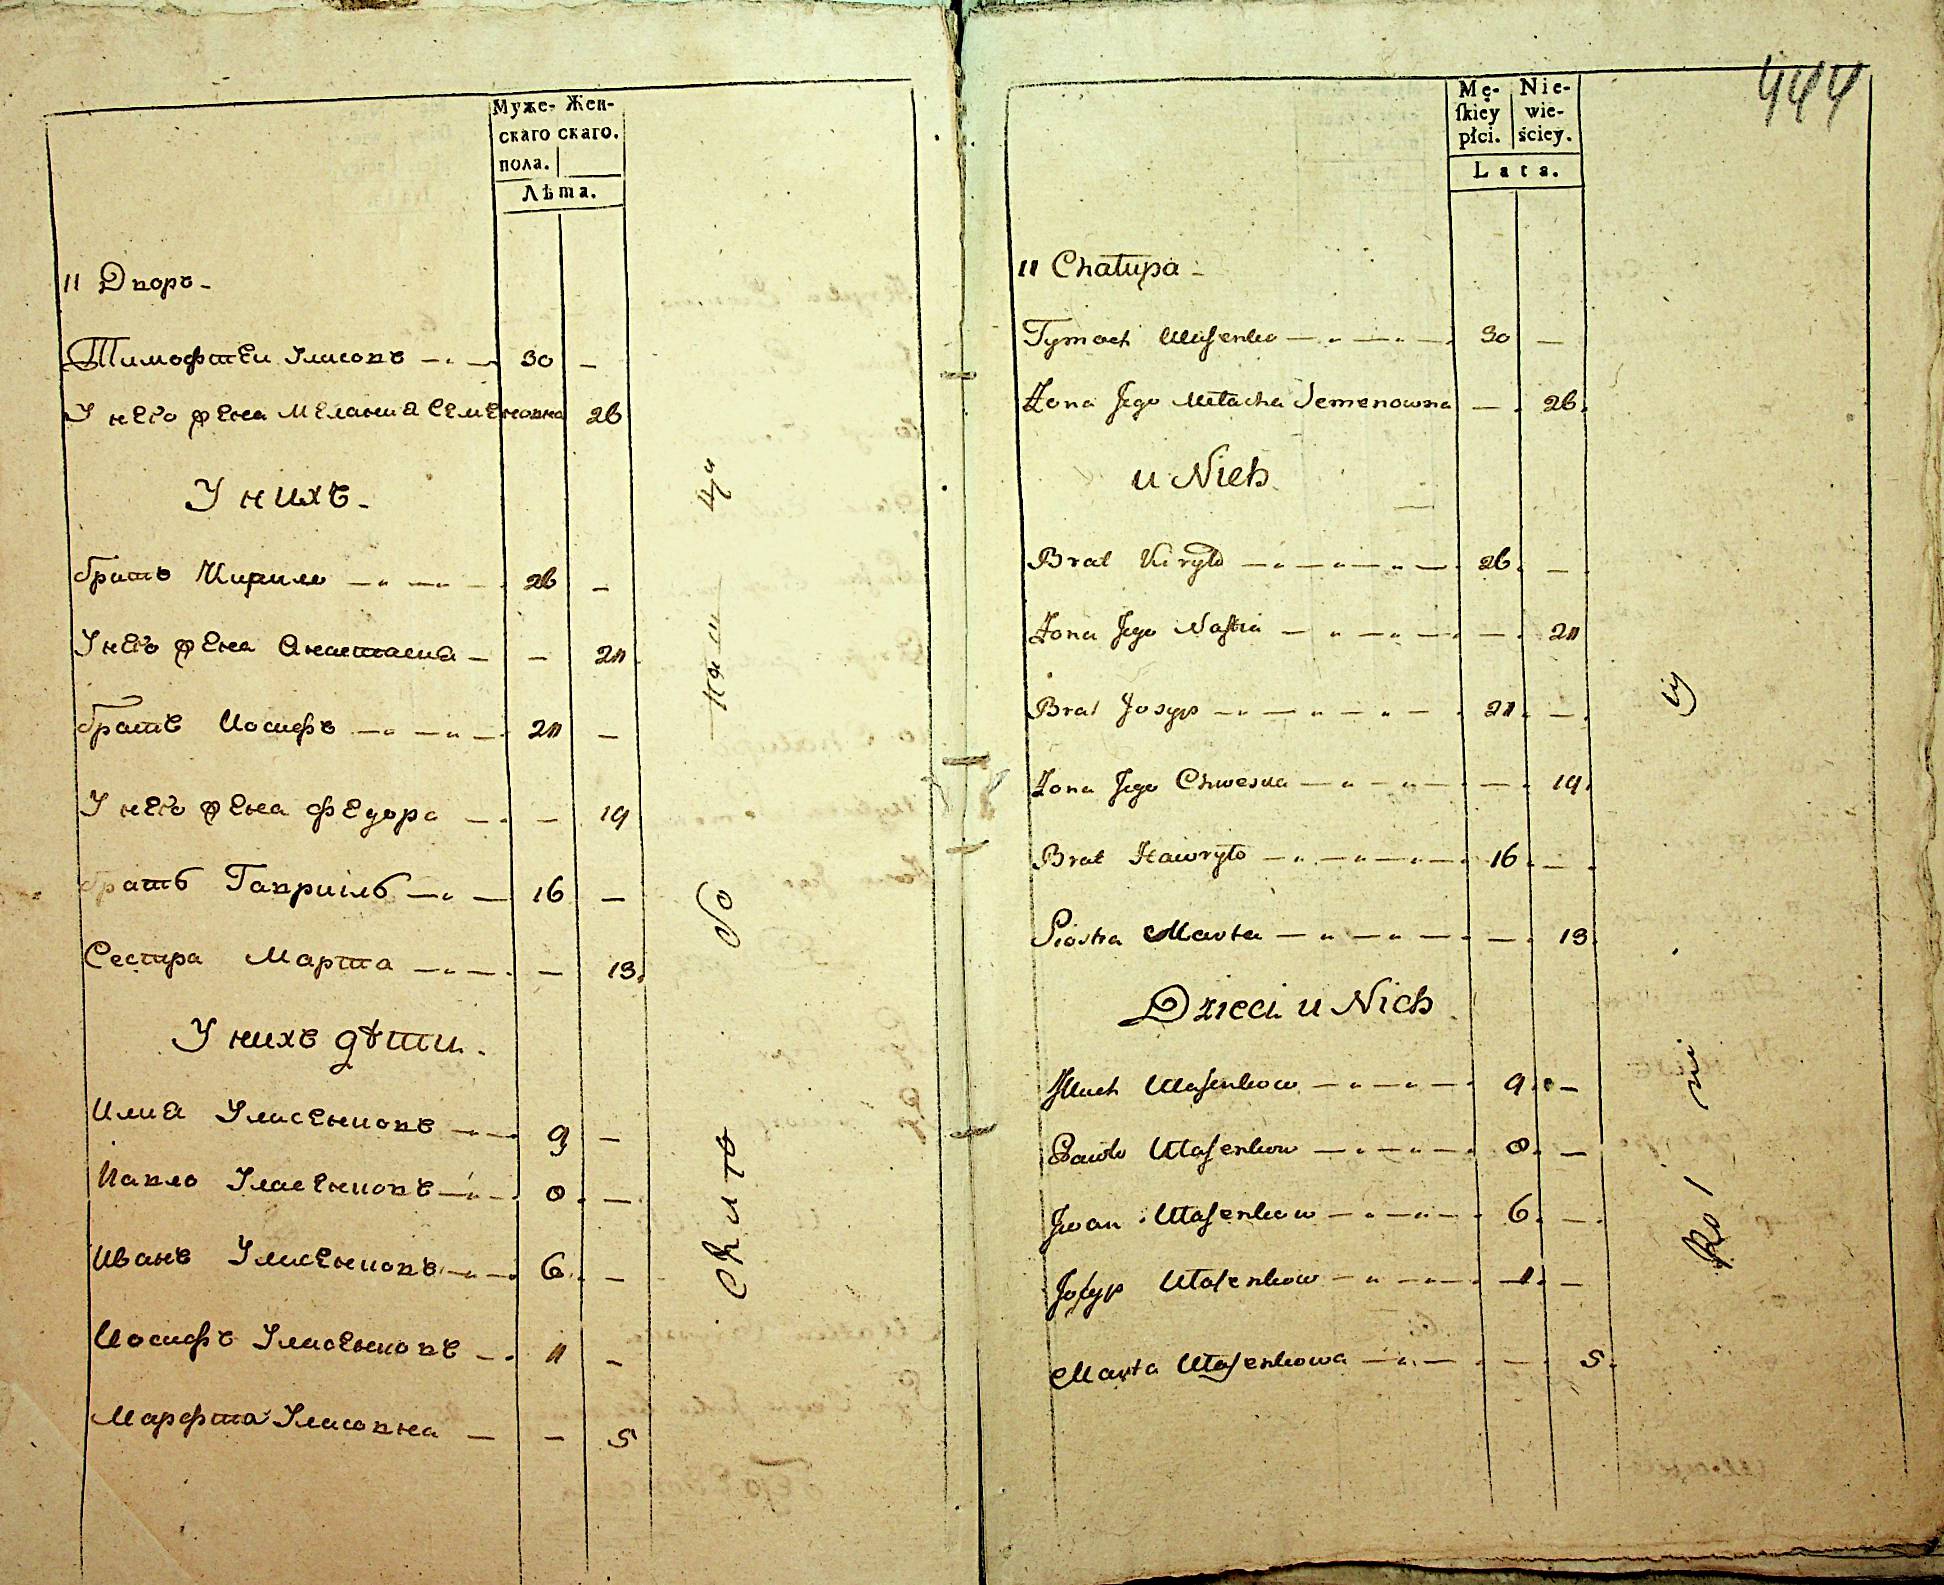 Муже- Жен-
скаго скаго.
пола.
Лѣта.
11 Дворъ -
Тимофтей Уласовъ - 30 -
У него жена Мелания Семеновна 26
У нихъ -
братъ Кирило - 26 -
У него жена Анастасия - - 20
братъ Иосифъ - 20 -
У него жена Федора - - 19
братъ Гавриилъ - 16 -
Сестра Марта - - 13
У нихъ дѣти.
Илиа Уласенковъ - 9 -
Павло Уласенковъ - 8 -
Иванъ Уласенковъ - 6 -
Иосифъ Уласенковъ - 1 -
Марфта Уласовна - - 5
444
Mę- Nie-
ſkiey wie-
płci. ściey.
Lata.
11 Chałupa -
Tymoch Ułaſenko - 30 -
Żona Jego Małacha Semenowna - 26
u Nich
Brat Kiryło - 26 -
Żona Jego Naſtia - - 20
Brat Josyp - 20 -
Żona Jego Chwesia - - 19
Brat Hawryło - 16 -
Siostra Marta - - 13
Dzieci u Nich
Jlluch Ułaſenkow - 9 -
Pawło Ułaſenkow - 8 -
Jwan Ułaſenkow - 6 -
Joſyp Ułaſenkow - 1 -
Marta Ułaſenkowa - - 5